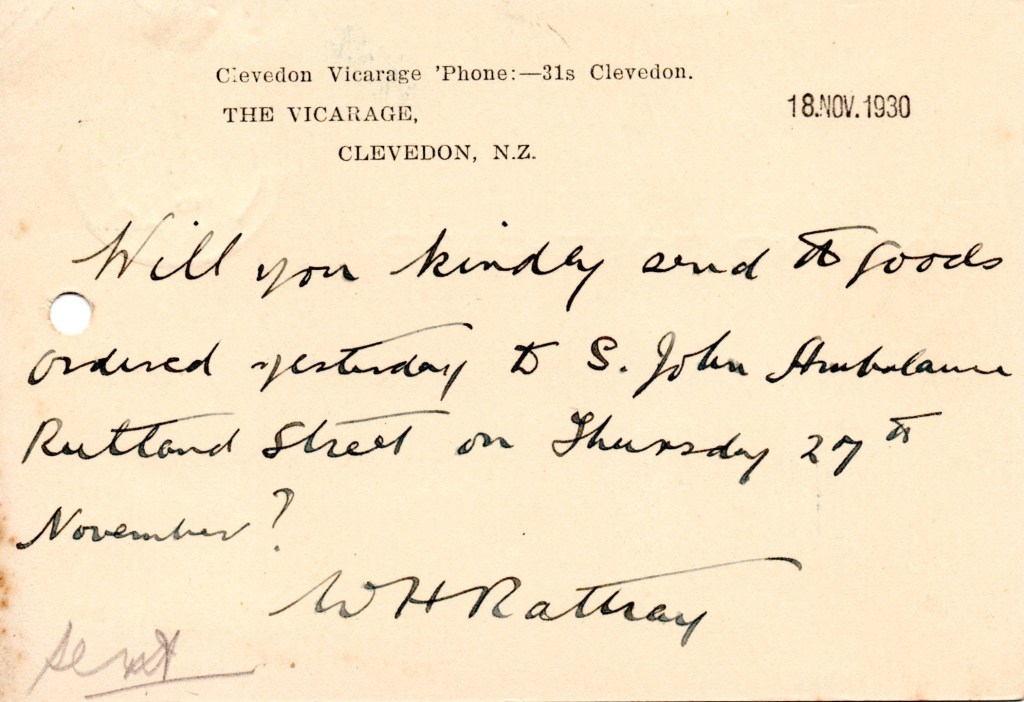 Clevedon Vicarage 'Phone:—31s Clevedon.
THE VICARAGE,
18.NOV.1930
CLEVEDON, N.Z.
Will you kindly send the goods
ordered yesterday to S. John Ambulance
Rutland Street on Thursday 27th
November?
W H Rattray
sent